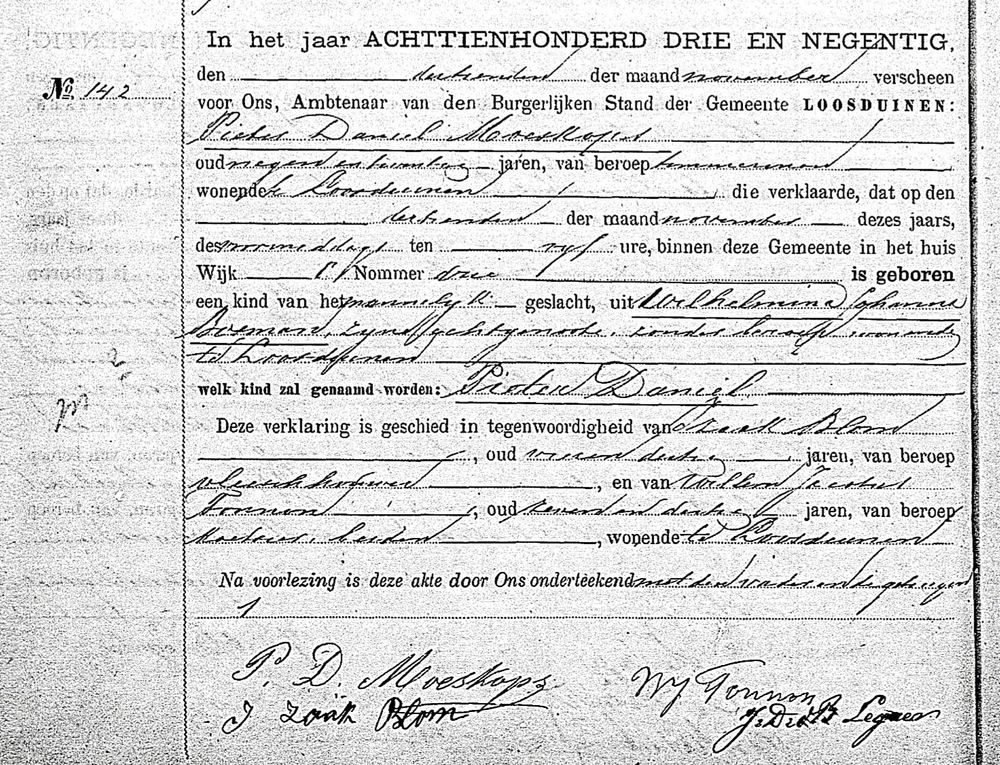 In het jaar ACHTTIENHONDERD DRIE EN NEGENTIG,
No. 142
den dertienden der maand november verscheen
voor Ons, Ambtenaar van den Burgerlijken Stand der Gemeente LOOSDUINEN:
Pieter Daniel Moeskops
oud negen en twintig jaren, van beroep timmerman
wonende te Loosduinen die verklaarde, dat op den
dertienden der maand november dezes jaars,
des voormiddags ten vijf ure, binnen deze Gemeente in het huis
Wijk Nommer drie is geboren
een kind van het mannelijk geslacht, uit Wilhelmina Johanna
Bosman, zijne echtgenoote, zonder beroep, wonende
te Loosduinen
welk kind zal genaamd worden: Pieter Daniel
Deze verklaring is geschied in tegenwoordigheid van Izaak Blom
, oud vier en dertig jaren, van beroep
vleeschhouwer, en van Willem Jacobus
Tonnon, oud zeven en dertig jaren, van beroep
beiden, wonende te Loosduinen
Na voorlezing is deze akte door Ons onderteekend met den vader en de getuigen
P. D. Moeskops
WJ Tonnon
J zaak Blom